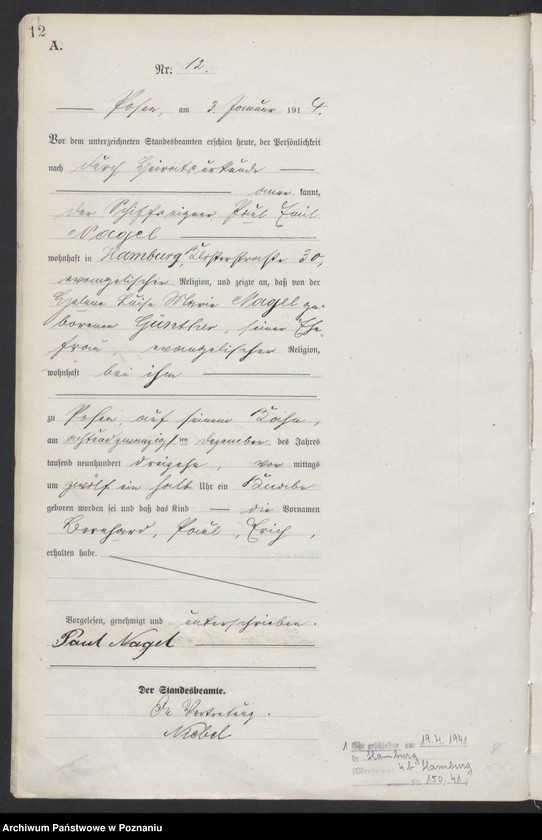 12
A.
Nr. 12.
Posen, am 3. Januar 1914.
Vor dem unterzeichneten Standesbeamten erschien heute, der Persönlichkeit
nach durch Heiratsurkunde
aner kannt,
der Schiffseigner Paul Emil
Nagel
wohnhaft in Hamburg, Klosterstraße 30,
evangelischer Religion, und zeigte an, daß von der
Helene Luise Marie Nagel ge-
borenen Günther, seiner Ehe-
frau, evangelischer Religion,
wohnhaft bei ihm
zu Posen, auf seinem Kahn,
am achtundzwanzigsten Dezember des Jahres
tausend neunhundert dreizehn, vor mittags
um zwölf ein halb Uhr ein Knabe
geboren worden sei und daß das Kind die Vornamen
Bernhard, Paul, Erich,
erhalten habe.
Vorgelesen, genehmigt und unterschrieben.
Paul Nagel
Der Standesbeamte.
In Vertretung.
Niebel
1 geschlossen am 19.4.1941
in Hamburg
4b Hamburg
180.41.
Archiwum Państwowe w Poznaniu